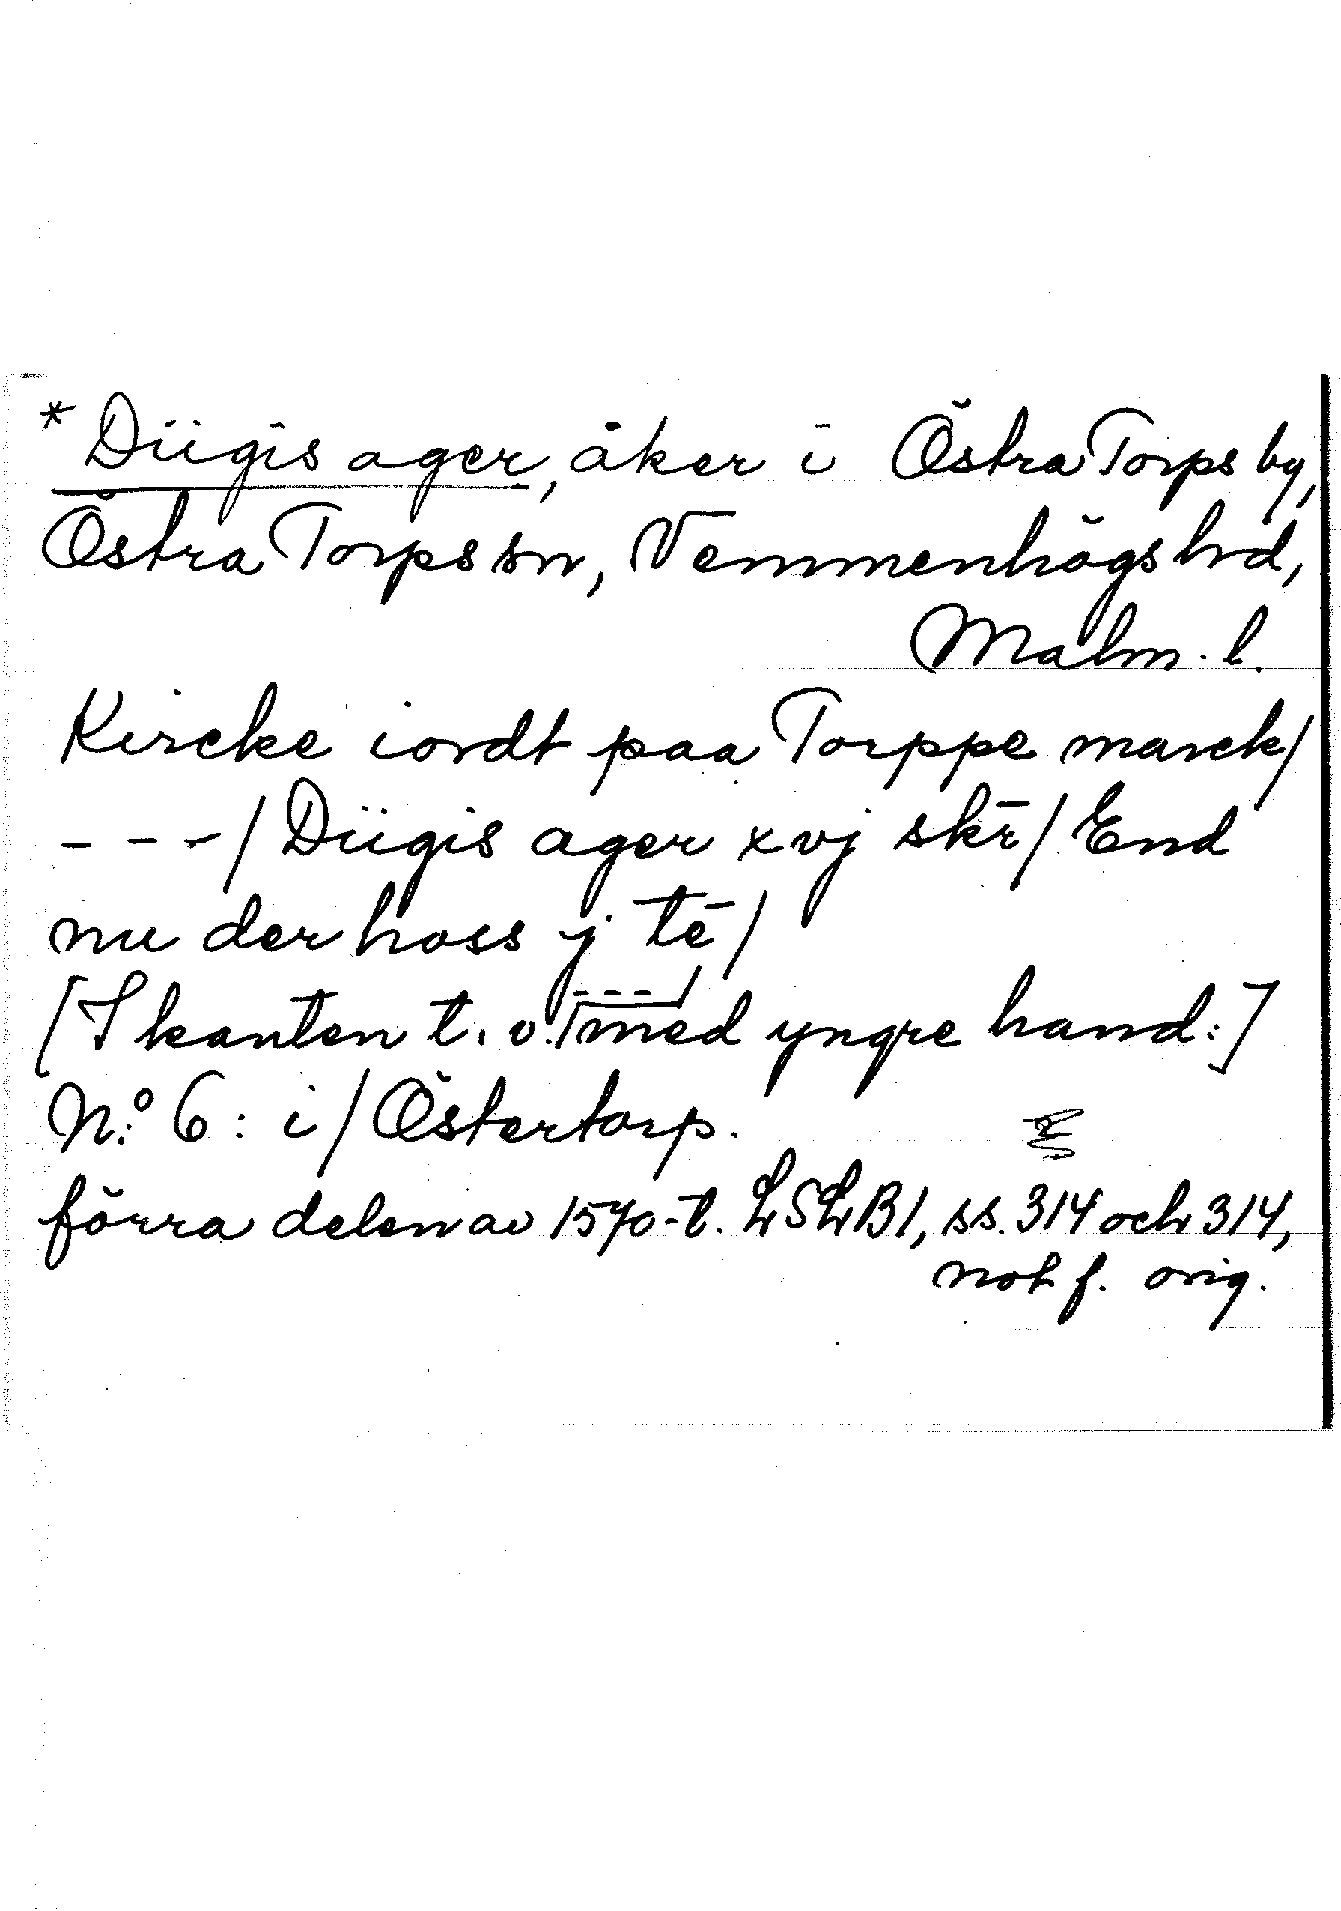 * Diigis ager, åker i Östra Torps by,
Östra Torps sn, Vemmenhögs hrd,
Malm. l.
Kircke iordt paa Torppe marck/
- - -/ Diigis ager xvj skr̄/ End
nu der hoss j tē/
- - -/
[I kanten t. v. med yngre hand:]
N:o 6: i/ Östertorp.
förra delen av 1570-t. LSLB1, ss. 314 och 314,
not f. orig.